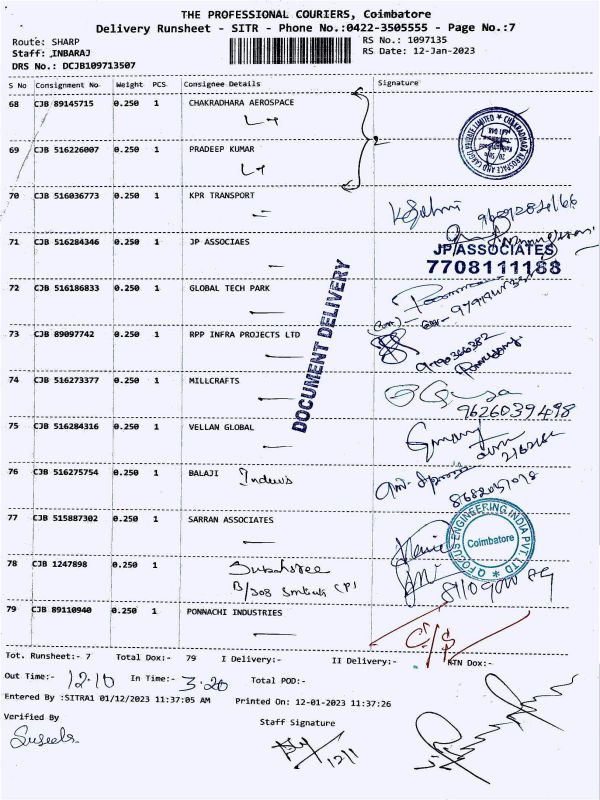 THE PROFESSIONAL COURIERS, Coimbatore
Delivery Runsheet - SITR - Phone No.:0422-3505555 - Page No.:7
Route: SHARP RS No.: 1097135
Staff: INBARAJ RS Date: 12-Jan-2023
DRS No.: DCJB109713507
S No Consignment No Weight PCS Consignee Details Signature
68 CJB 89145715 0.250 1 CHAKRADHARA AEROSPACE
69 CJB 516226007 0.250 1 PRADEEP KUMAR
2
70 CJB 516036773 0.250 1 KPR TRANSPORT
71 CJB 516284346 0.250 1 JP ASSOCIAES
JP ASSOCIATES
7708111188
72 CJB 516186833 0.250 1 GLOBAL TECH PARK
DOCUMENT DELIVERY
73 CJB 89097742 0.250 1 RPP INFRA PROJECTS LTD
9790366382
74 CJB 516273377 0.250 1 MILLCRAFTS
9626039498
75 CJB 516284316 0.250 1 VELLAN GLOBAL
76 CJB 516275754 0.250 1 BALAJI
77 CJB 515887302 0.250 1 SARRAN ASSOCIATES
FOCUS ENGINEERING INDIA PVT. LTD
Coimbatore
78 CJB 1247898 0.250 1
79 CJB 89110940 0.250 1 PONNACHI INDUSTRIES
Tot. Runsheet:- 7 Total Dox:- 79 I Delivery:- II Delivery:- NTN Dox:-
Out Time:- 12.10 In Time:- 3.20 Total POD:-
Entered By :SITRA1 01/12/2023 11:37:05 AM Printed On: 12-01-2023 11:37:26
Verified By Staff Signature
12/1